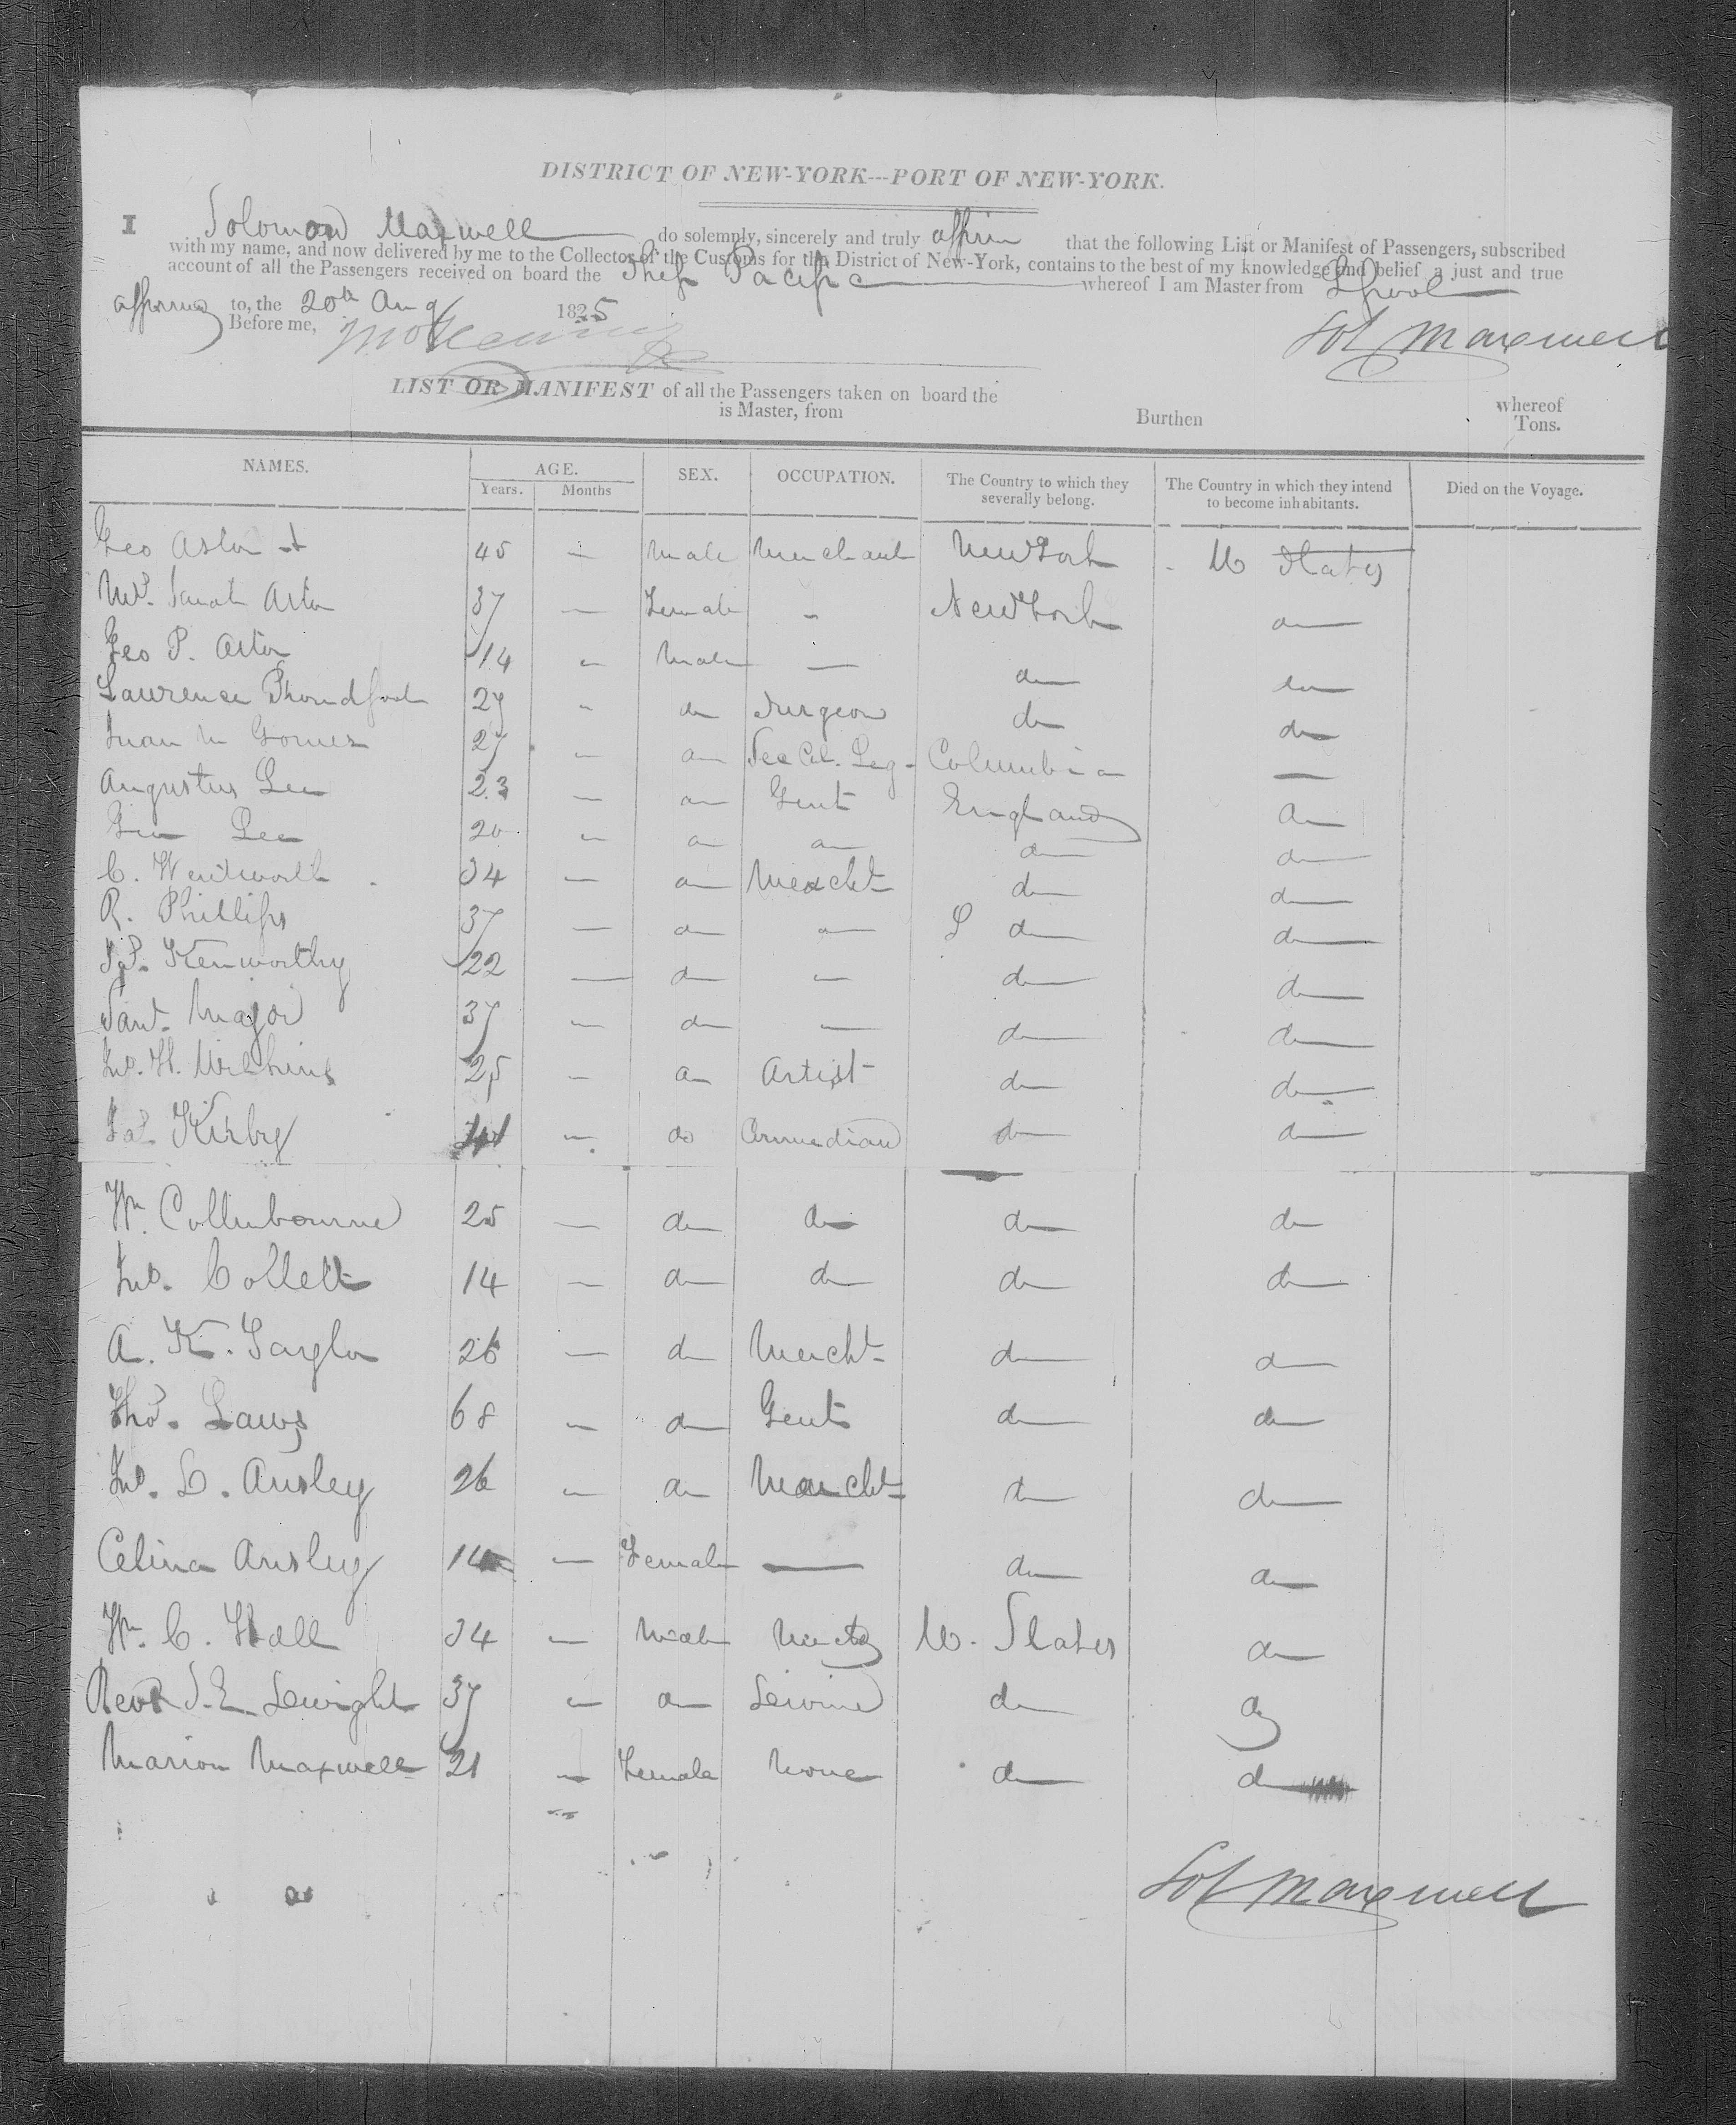 DISTRICT OF NEW-YORK---PORT OF NEW-YORK.
I Solomon Maxwell do solemnly, sincerely and truly affirm that the following List or Manifest of Passengers, subscribed
with my name, and now delivered by me to the Collector of the Customs for the District of New-York, contains to the best of my knowledge and belief a just and true
account of all the Passengers received on board the Ship Pacific whereof I am Master from Lpool
affirmed to, the 20th Aug 1825
Before me,
Sol Maxwell
LIST OR MANIFEST of all the Passengers taken on board the whereof
is Master, from Burthen Tons.
NAMES. AGE. SEX. OCCUPATION. The Country to which they severally belong. The Country in which they intend to become inhabitants. Died on the Voyage.
Years. Months
Geo Astor 45 — Male Merchant New York U States
Mrs. Sarah Astor 37 — Female - New York do
Geo P. Astor 14 - Male — do do
Lawrence 27 - do Surgeon do do
Juan M Gomez 27 - do Sec Col. Leg- Columbia —
Augustus Lee 23 — do Gent England do
Geo Lee 20 - do do do do
C. Wentworth 34 — do Mercht do do
R. Phillips 37 — do do do
Jas. Kenworthy 22 — do - do do
Saml. Major 37 - do — do do
Jno. H. Wilkins 25 - do Artist do do
Jas. Kirby - do Commedian do do
Wm. Collinbourne 25 — do do do do
Jno. Collett 14 — do do do do
A. K. Taylor 26 — do Mercht do do
Thos. Laws 68 - do Gent do do
Jno. D. Ansley 26 - do Mercht do do
Celina Ansley 14 — Female — do do
Wm. C. Hall 34 — Male U. States do
Revd S. E. 37 - do do do
Marion Maxwell 21 - Female None do do
Sol Maxwell